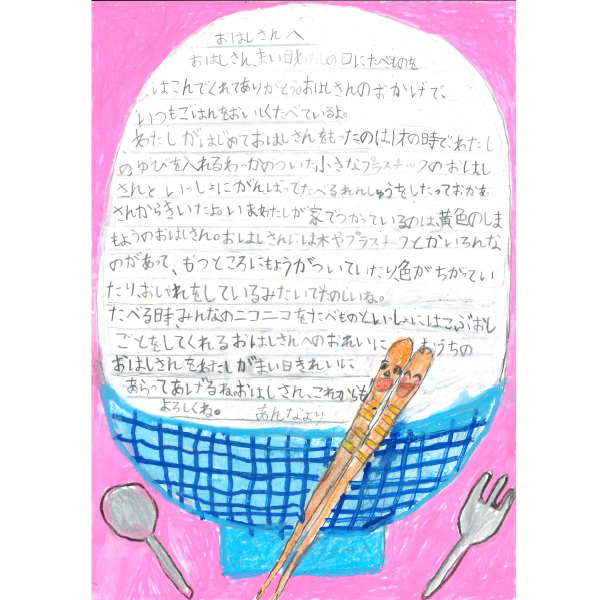 おはしさんへ
おはしさん、まい日わたしの口にたべものを
はこんでくれてありがとう。おはしさんのおかげで、
いつもごはんをおいしくたべているよ。
わたしがはじめておはしさんをもったのは1才の時で、わたし
のゆびを入れるわっかのついた小さなプラスチックのおはし
さんと、いっしょにがんばってたべるれんしゅうをしたっておかあ
さんからきいたよ。いまわたしが家でつかっているのは、黄色のしま
もようのおはしさん。おはしさんには木やプラスチックとかいろんな
のがあって、もつところにもようがついていたり、色がちがってい
たり、おしゃれをしているみたいでたのしいね。
たべる時、みんなのニコニコをたべものといっしょにはこぶおし
ごとをしてくれるおはしさんへのおれいに、おうちの
おはしさんをわたしがまい日きれいに
あらってあげるね。おはしさん、これからも
よろしくね。 あんなより